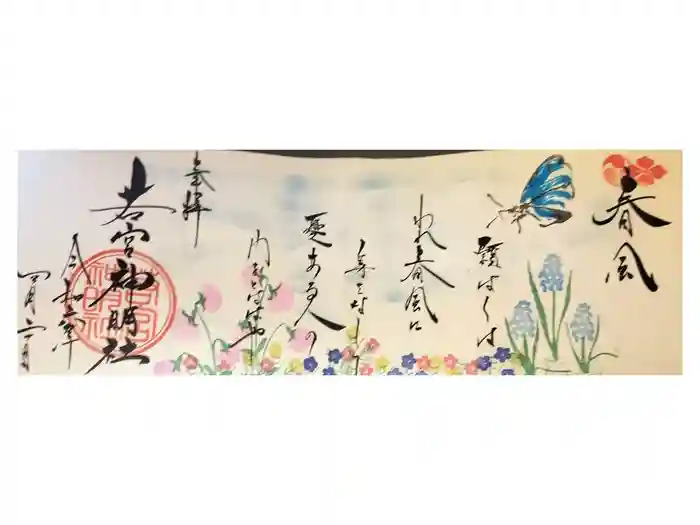 春風
願はくは
われ春風に
身をなして
憂ある人の
門をとはばや
奉拝
若宮神明社
四月二日